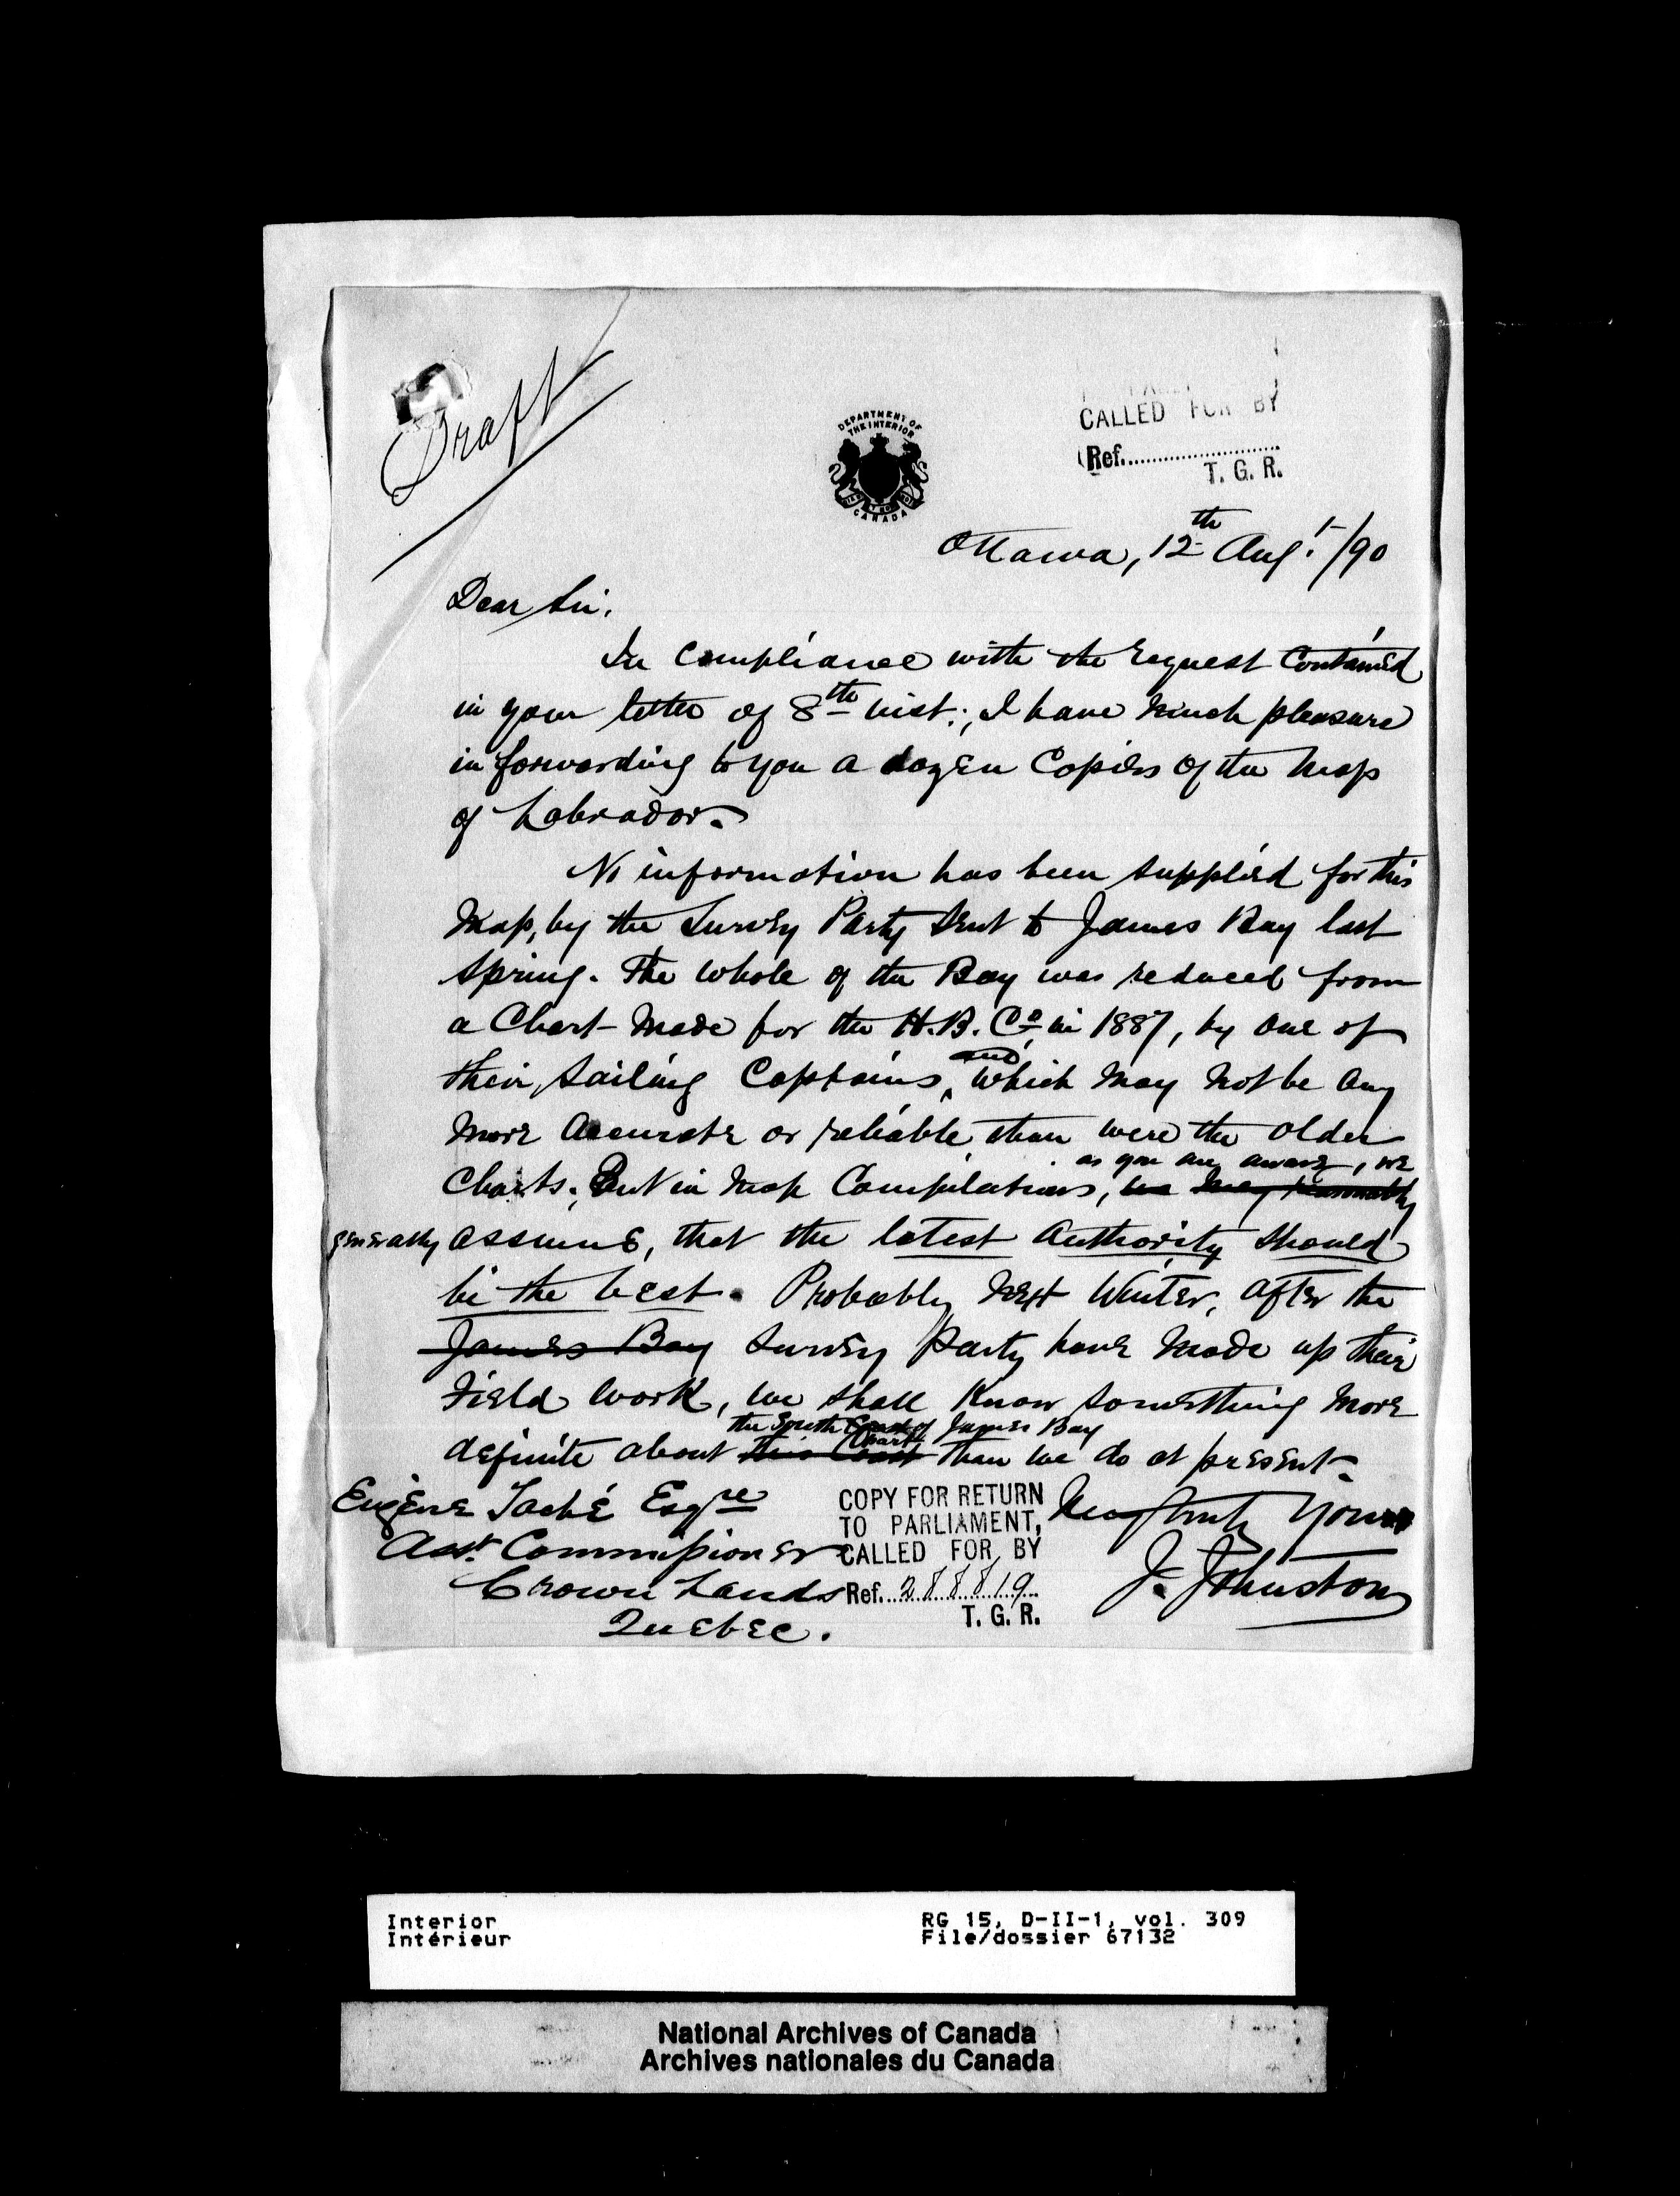 Draft
DEPARTMENT OF
THE INTERIOR
CANADA
CALLED FOR BY
Ref.
T. G. R.
Ottawa, 12th Augt/90
Dear Sir.
In compliance with the request contained
in your letter of 8th inst:, I have much pleasure
in forwarding to you a dozen Copies of the Map
of Labrador.
No information has been supplied for this
Map, by the Survey Party sent to James Bay last
Spring. The whole of the Bay was reduced from
a Chart made for the H.B. Co in 1887, by one of
their sailing Captains, and which may not be any
more accurate or reliable than were the older
as you are aware, we
Charts; But in Map Compilations, we may reasonably
generally assume, that the latest authority should
be the best. Probably next Winter, after the
James Bay Survey Party have made up their
Field work, we shall know something more
the South Coast of James Bay
Chart
definite about this Coast than we do at present.
Eugène Taché Esqre
Asst. Commissioner
Crown Lands
Quebec.
COPY FOR RETURN
TO PARLIAMENT,
CALLED FOR BY
Ref. 288819
T. G. R.
Very truly Yours
J. Johnston
Interior
Intérieur
RG 15, D-II-1, vol. 309
File/dossier 67132
National Archives of Canada
Archives nationales du Canada